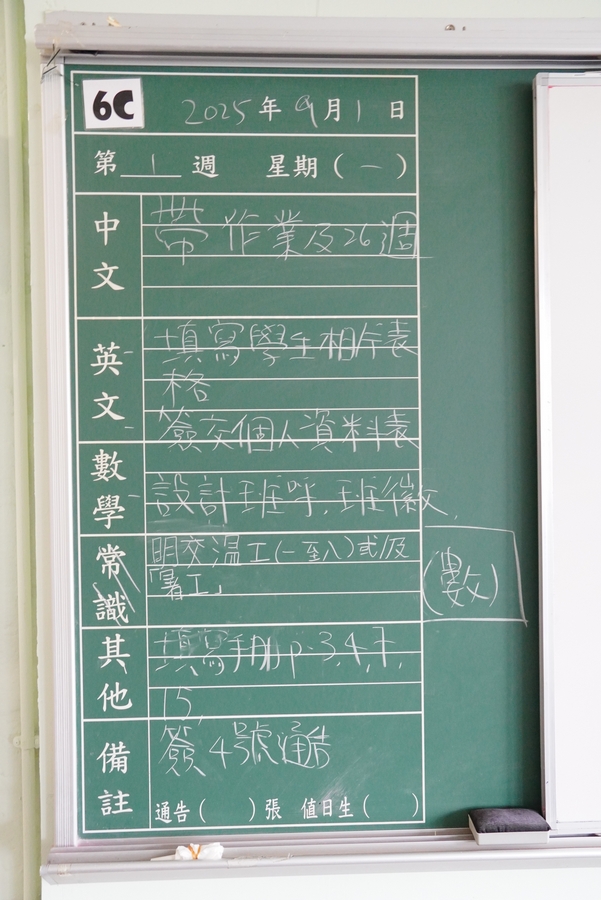 6C 2025年9月1日
第 1 週 星期(一)
中文 帶作業及26週
英文 填寫學生相片表
格
簽交個人資料表
數學 設計班呼,班徽,
常識 明交溫工(一至八)或/及
「暑工」 (數)
其他 填寫手冊p.3,4,7,
15,
備註 簽4號通告
通告( )張 值日生( )